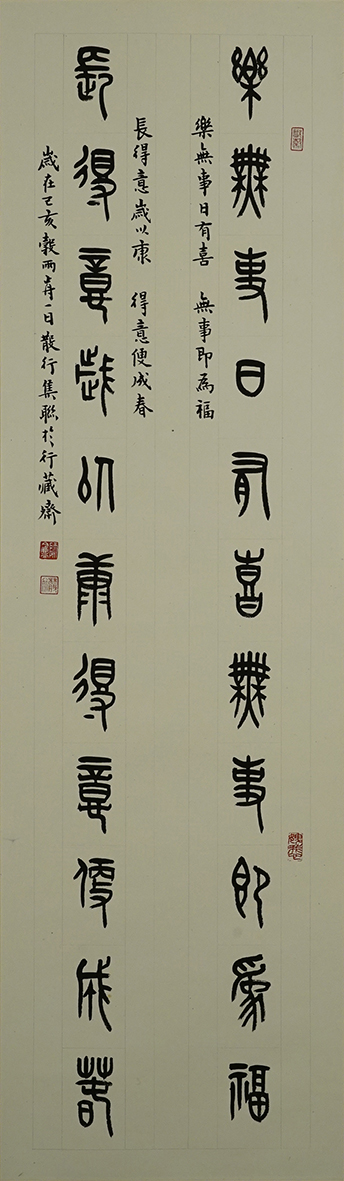 樂無事日有喜無事即為福
樂無事日有喜 無事即為福
長得意歲以康 得意便成春
長得意歲以康得意便成春
歲在己亥穀雨前一日散行集聯於行藏齋